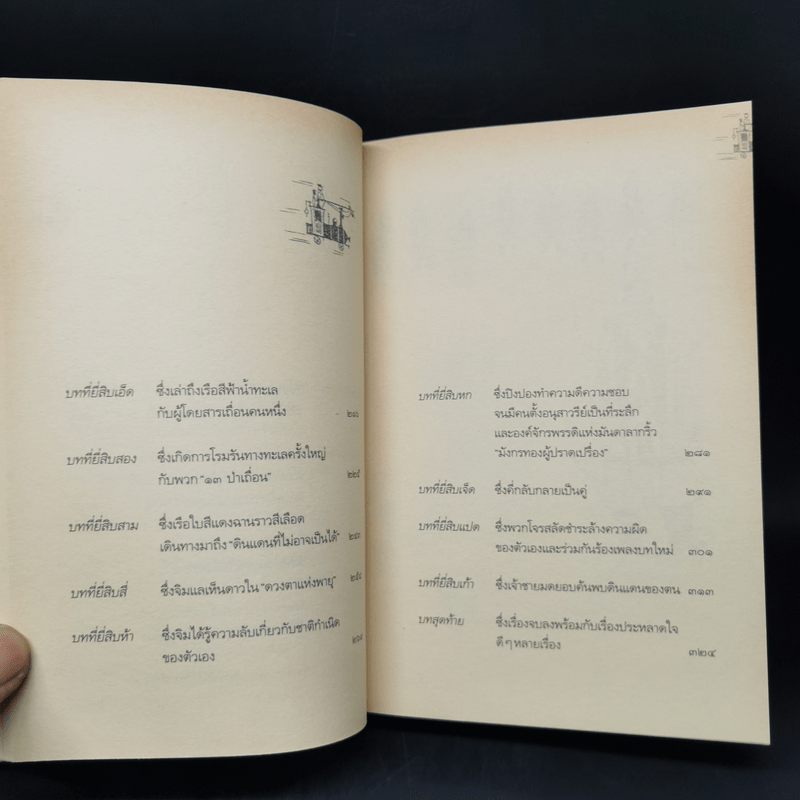 บทที่ยี่สิบเอ็ด ซึ่งเล่าถึงเรือสีฟ้าน้ำทะเล
กับผู้โดยสารเถื่อนคนหนึ่ง
บทที่ยี่สิบสอง ซึ่งเกิดการโรมรันทางทะเลครั้งใหญ่
กับพวก “๑๓ ป่าเถื่อน” ๒๒๕
บทที่ยี่สิบสาม ซึ่งเรือใบสีแดงฉานราวสีเลือด
เดินทางมาถึง “ดินแดนที่ไม่อาจเป็นได้”
บทที่ยี่สิบสี่ ซึ่งจิมแลเห็นดาวใน “ดวงตาแห่งพายุ”
บทที่ยี่สิบห้า ซึ่งจิมได้รู้ความลับเกี่ยวกับชาติกำเนิด
ของตัวเอง
บทที่ยี่สิบหก ซึ่งปิงปองทำความดีความชอบ
จนมีคนตั้งอนุสาวรีย์เป็นที่ระลึก
และองค์จักรพรรดิแห่งมันดาลากริ้ว
“มังกรทองผู้ปราดเปรื่อง” ๒๘๑
บทที่ยี่สิบเจ็ด ซึ่งคี่กลับกลายเป็นคู่ ๒๙๑
บทที่ยี่สิบแปด ซึ่งพวกโจรสลัดชำระล้างความผิด
ของตัวเองและร่วมกันร้องเพลงบทใหม่ ๓๐๑
บทที่ยี่สิบเก้า ซึ่งเจ้าชายมดยอบค้นพบดินแดนของตน ๓๑๓
บทสุดท้าย ซึ่งเรื่องจบลงพร้อมกับเรื่องประหลาดใจ
ดีๆ หลายเรื่อง ๓๒๔